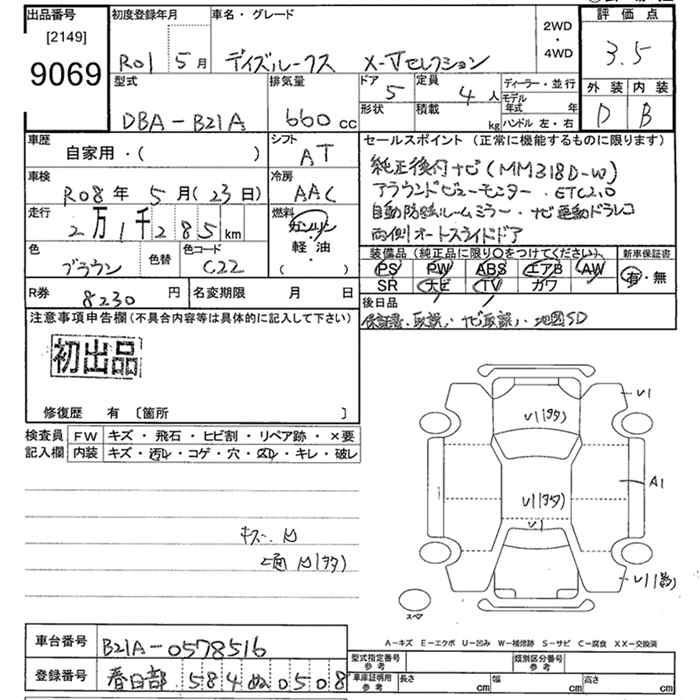 出品番号 初度登録年月 車名・グレード 2WD・4WD 評価点
[2149]
9069 R01 5月 デイズルークス X-Vセレクション 3.5
型式 排気量 ドア 5 定員 4人 ディーラー・並行 外装 内装
DBA-B21A 660cc 形状 積載 kg モデル年式 年 D B
ハンドル 左・右
車歴 シフト セールスポイント (正常に機能するものに限ります)
自家用・( ) AT 純正後付ナビ(MM318D-W)
車検 冷房 アラウンドビューモニター・ETC2.0
R08年 5月(23日) AAC 自動防眩ルームミラー・ナビ連動ドラレコ
走行 燃料 両側オートスライドドア
2万1千285km ガソリン 軽・油・( )
色 色替 色コード 装備品(純正品に限り○をつけてください) 新車保証書
ブラウン C22 PS PW ABS エアB AW 有・無
SR ナビ TV カワ
R券 8230円 名変期限 月 日 後日品
注意事項申告欄(不具合内容等は具体的に記入して下さい) 保証書、取説、ナビ取説、地図SD
初出品
修復歴 有 〔箇所 〕
検査員 FW キズ・飛石・ヒビ割・リペア跡・×要
記入欄 内装 キズ・汚レ・コゲ・穴・スレ・キレ・破レ
U1
U1(タタ)
A1
U1(タタ)
U1
キズ、
スペア
A-キズ E-エクボ U-凹み W-補修跡 S-サビ C-腐食 XX-交換済
車台番号 B21A-0578516
型式指定番号 参考 類別区分番号 参考
登録番号 春日部 584 ぬ 0508
車庫証明用 参考 長さ cm 幅 cm 高さ cm